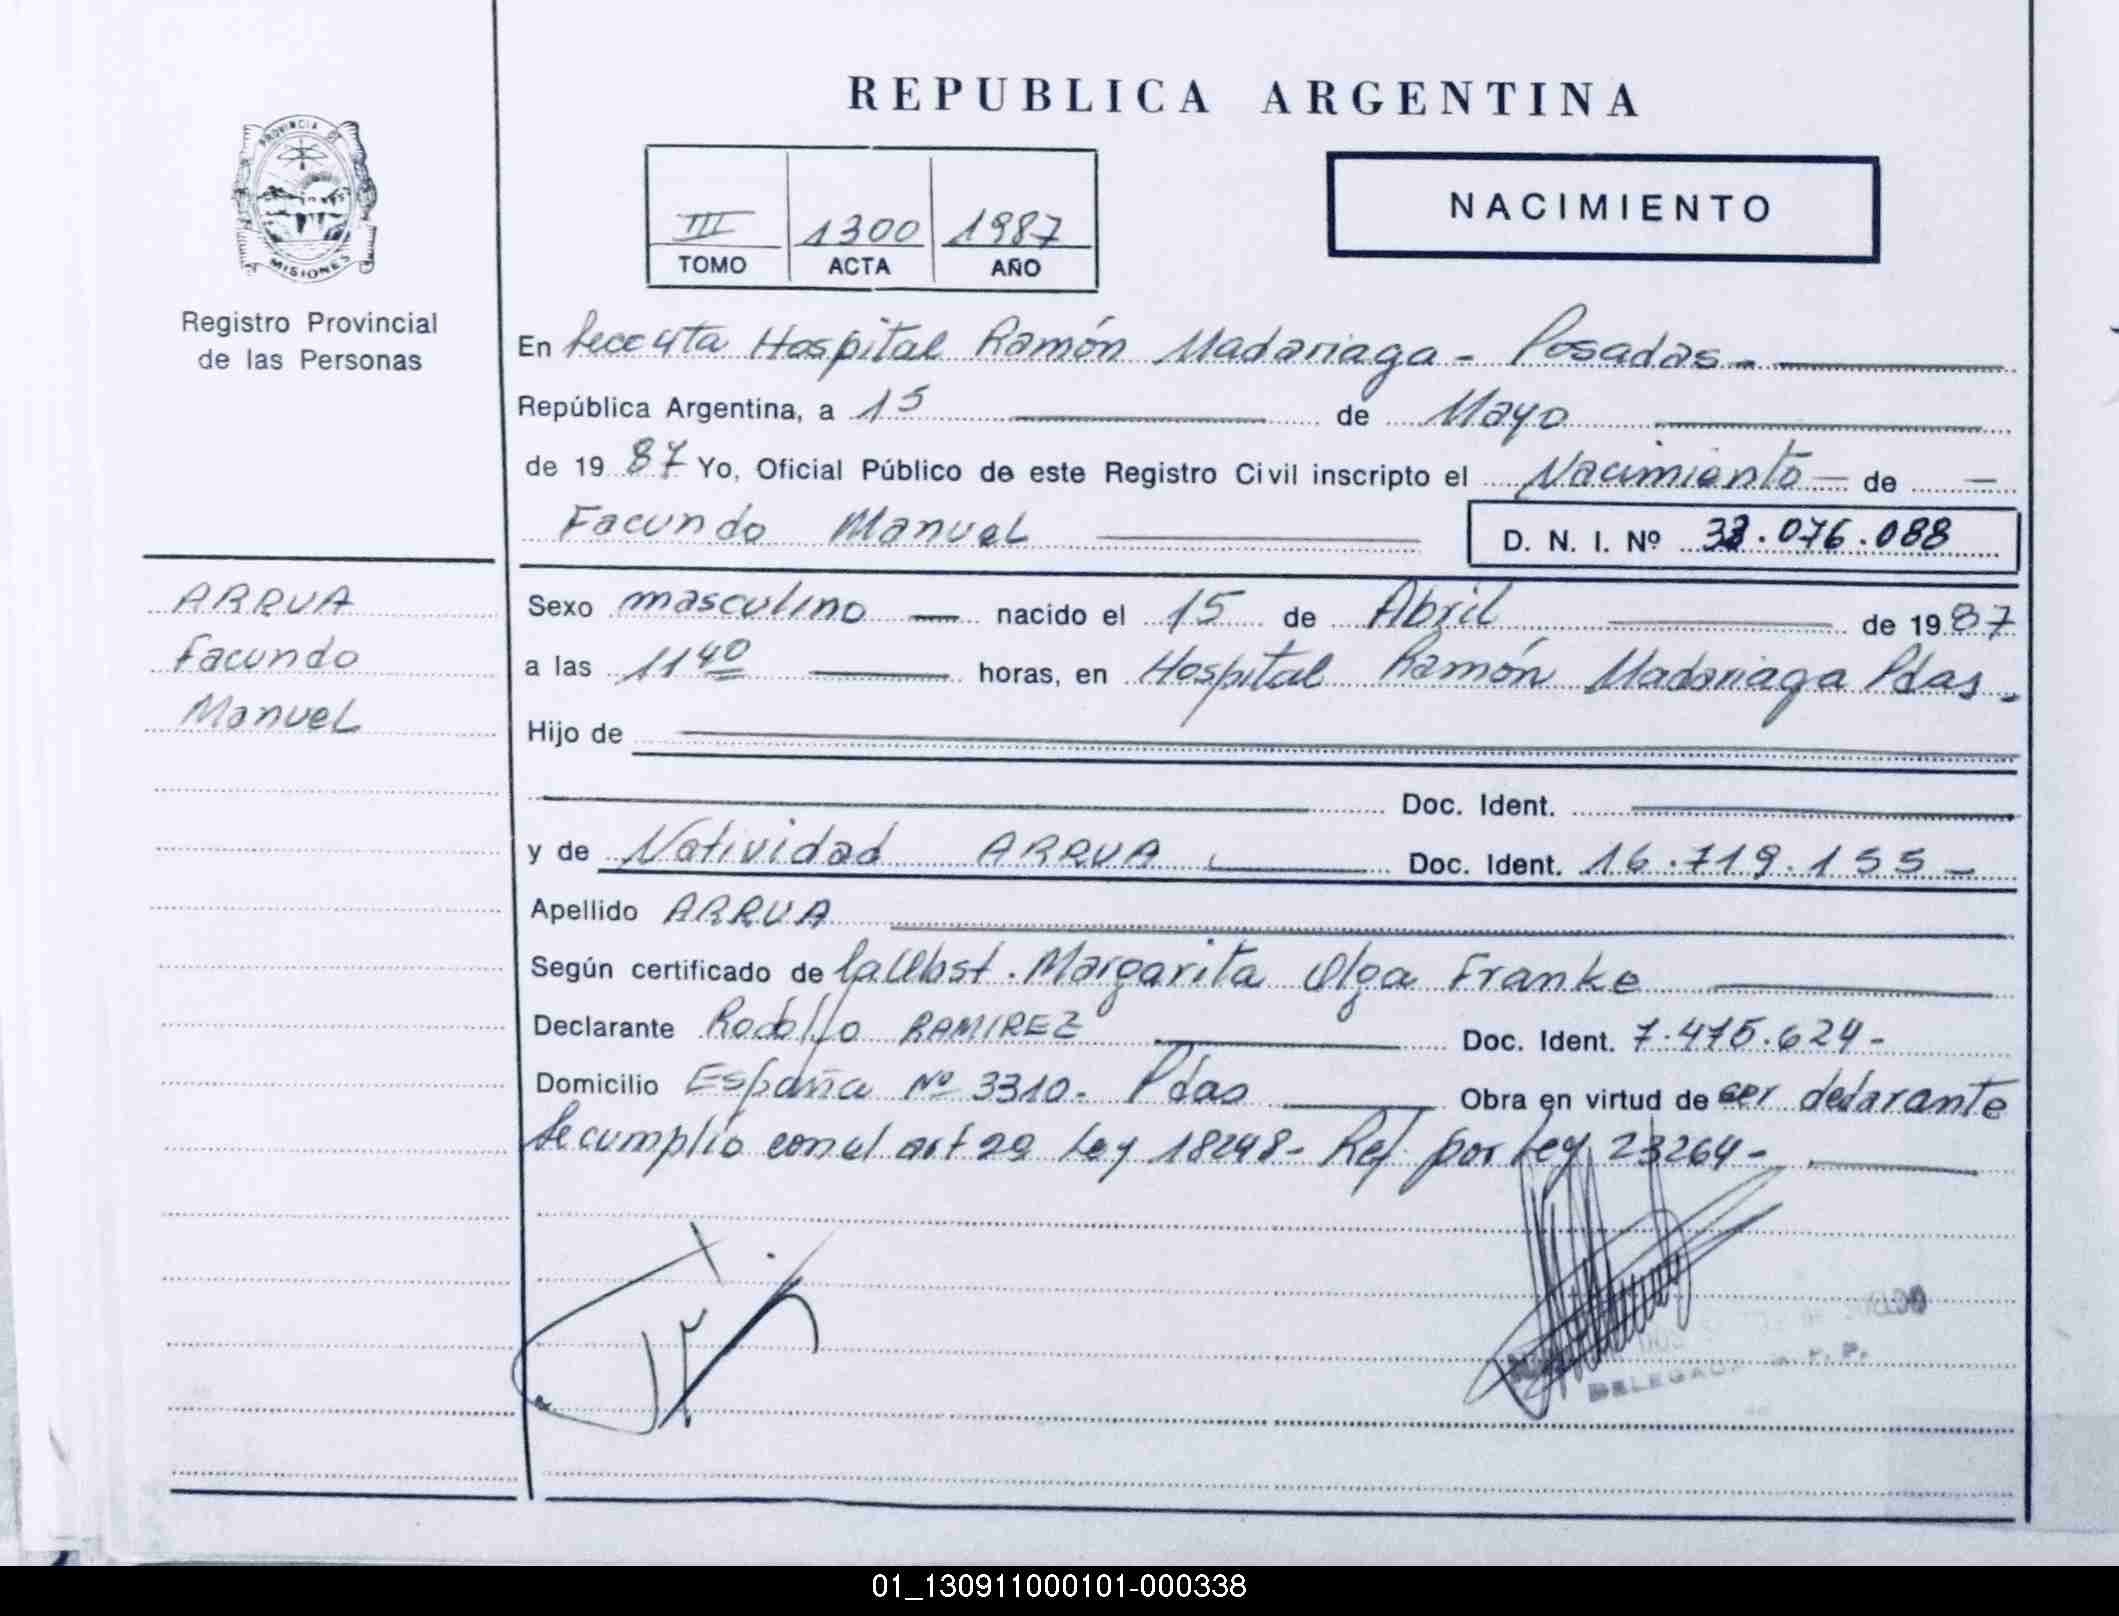 REPUBLICA ARGENTINA
PROVINCIA DE
MISIONES
Registro Provincial
de las Personas
III 1300 1987
TOMO ACTA AÑO
NACIMIENTO
En Secc 4ta Hospital Ramón Madariaga - Posadas -
República Argentina, a 15 de Mayo
de 19 87 Yo, Oficial Público de este Registro Civil inscripto el Nacimiento - de -
Facundo Manuel
D. N. I. Nº 33.076.088
ARRUA
Facundo
Manuel
Sexo masculino - nacido el 15 de Abril de 19 87
a las 11 40 horas, en Hospital Ramón Madariaga Pdas -
Hijo de
Doc. Ident.
y de Natividad ARRUA Doc. Ident. 16.719.155 -
Apellido ARRUA
Según certificado de la Obst. Margarita Olga Franke
Declarante Rodolfo RAMIREZ Doc. Ident. 7.475.624 -
Domicilio España Nº 3310. Pdas Obra en virtud de ser declarante
Se cumplio con el art 29 Ley 18248 - Ref. por Ley 23264 -
01_130911000101-000338